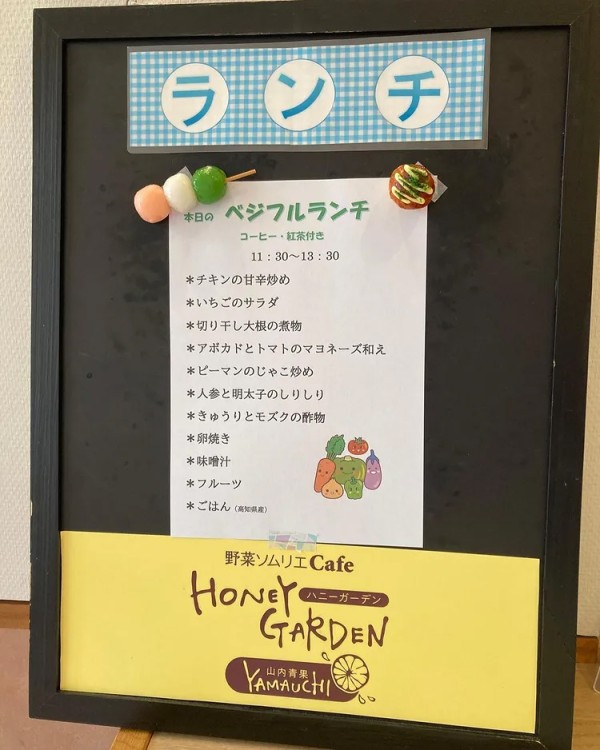 ランチ
本日の ベジフルランチ
コーヒー・紅茶付き
11:30～13:30
＊チキンの甘辛炒め
＊いちごのサラダ
＊切り干し大根の煮物
＊アボカドとトマトのマヨネーズ和え
＊ピーマンのじゃこ炒め
＊人参と明太子のしりしり
＊きゅうりとモズクの酢物
＊卵焼き
＊味噌汁
＊フルーツ
＊ごはん（高知県産）
野菜ソムリエCafe
HONEY ハニーガーデン
GARDEN
山内青果
YAMAUCHI